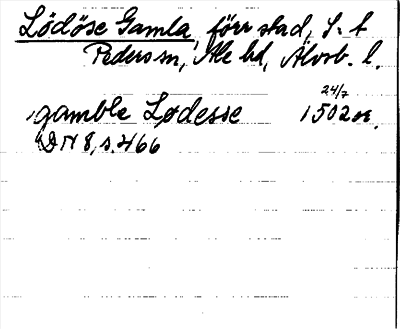 Lödöse Gamla, förr stad, S:t
Peders sn, Ale hd, Älvsb. l.
gamble Lødesse 24/7 1502 or.
DN 8, s. 466